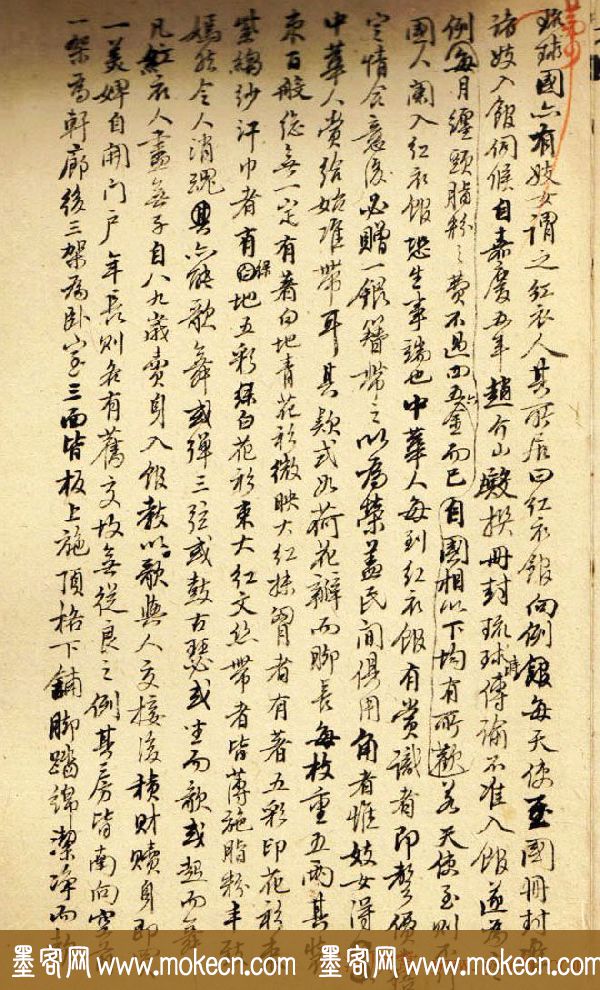 琉球國亦有妓女謂之紅衣人其所居曰紅衣館向例館每天使至國冊封
諸妓入館伺候自嘉慶五年趙介山殿撰冊封琉球時傳諭不准入館遂為
例每月纏頭脂粉之費不過四五金而已自國相以下均有所歡若天使至則
國人闌入紅衣館恐生事端也中華人每到紅衣館有賞識者即
定情合意後必贈一銀簪帶之以為榮蓋民間俱用角者惟妓女得
中華人賞給始准帶耳其款式如荷花瓣而脚長每枚重五兩其裝
束百般總無一定有著白地青花衫微映大紅抹胸者有著五彩印花衫
紫縐紗汗巾者有綠地五彩白花衫束大紅文絲帶者皆薄施脂粉丰
嫣然令人消魂其亦能歌舞或彈三弦或鼓古瑟或坐而歌或起而舞
凡紅衣人盡無子自八九歲賣身入館教以歌與人交接後積財贖身即
一美婢自開门户年長則各有舊交故無從良之例其房皆南向
一架為軒廊後三架為卧室三面皆板上施頂格下鋪脚踏綿潔净而
墨客网 www.mokecn.com 墨客网 www.mokecn.com